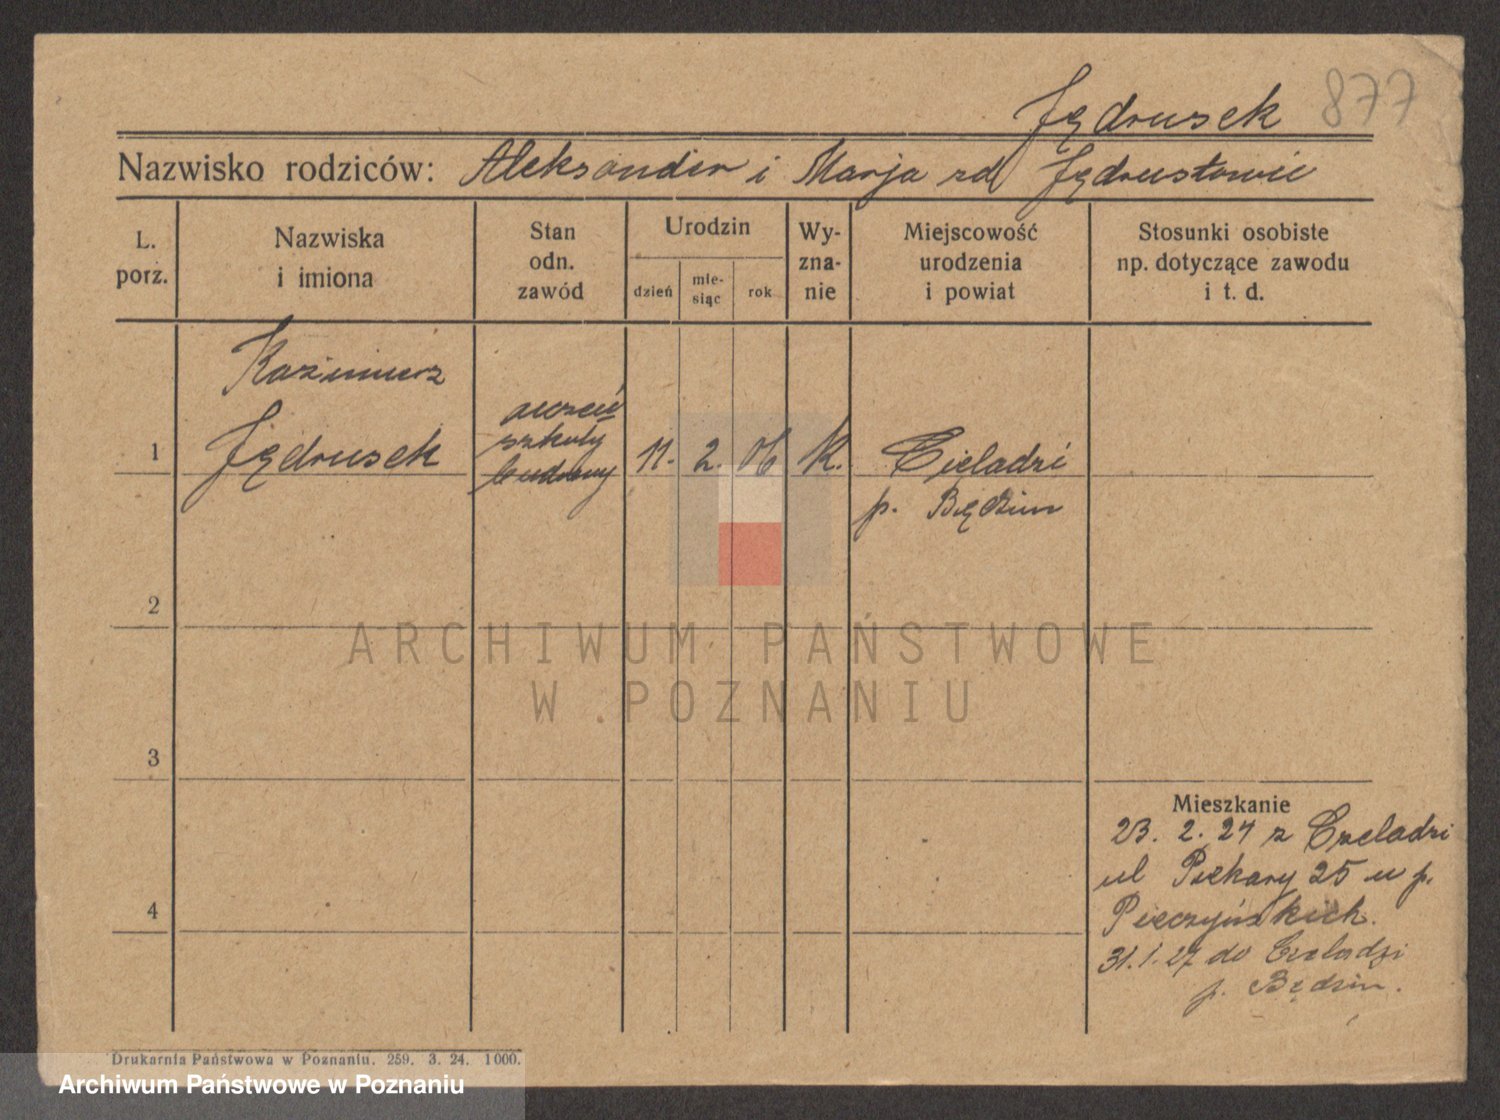 Jędrusek 877
Nazwisko rodziców: Aleksander i Marja zd Jędrusłowie
L. porz.
Nazwiska i imiona
Stan odn. zawód
Urodzin
dzień
mie-siąc
rok
Wy-zna-nie
Miejscowość urodzenia i powiat
Stosunki osobiste np. dotyczące zawodu i t. d.
Kazimierz
1 Jędrusek
uczeń
szkoły
budowy
11. 2. 06 K. Czeladzi
p. Będzin
2
3
4
Mieszkanie
23. 2. 27 z Czeladzi
ul Piekary 25 u p.
Pieczyńskich.
31.1.27 do Czeladzi
p. Będzin.
ARCHIWUM PAŃSTWOWE
W POZNANIU
Drukarnia Państwowa w Poznaniu. 259. 3. 24. 1000.
Archiwum Państwowe w Poznaniu